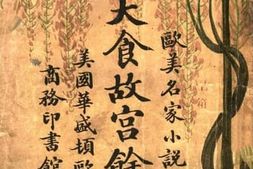 歐美名家小說
大食故宮餘
美國華盛頓歐
商務印書館